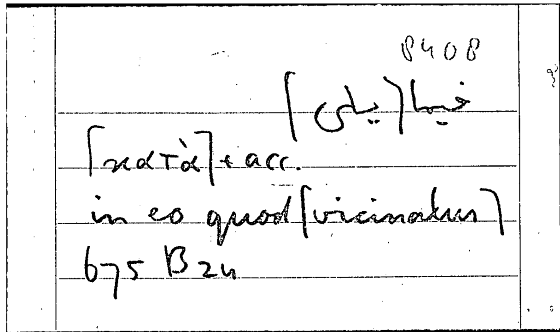 8408
فيما [يلى]
[κατὰ] + acc.
in eo quod [vicinatur]
675 B 24